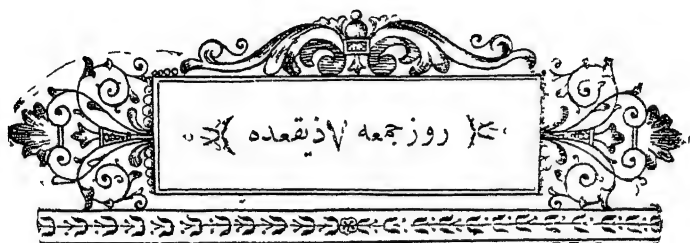 روز جمعه ۷ ذیقعده